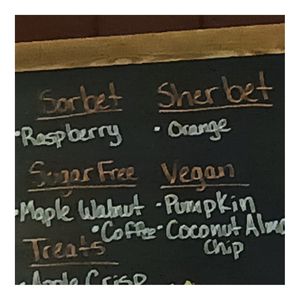 Sorbet
• Raspberry
Sherbet
• Orange
Sugar Free
• Maple Walnut
• Coffee
Vegan
• Pumpkin
• Coconut Almo
Chip
Treats
• Apple Crisp